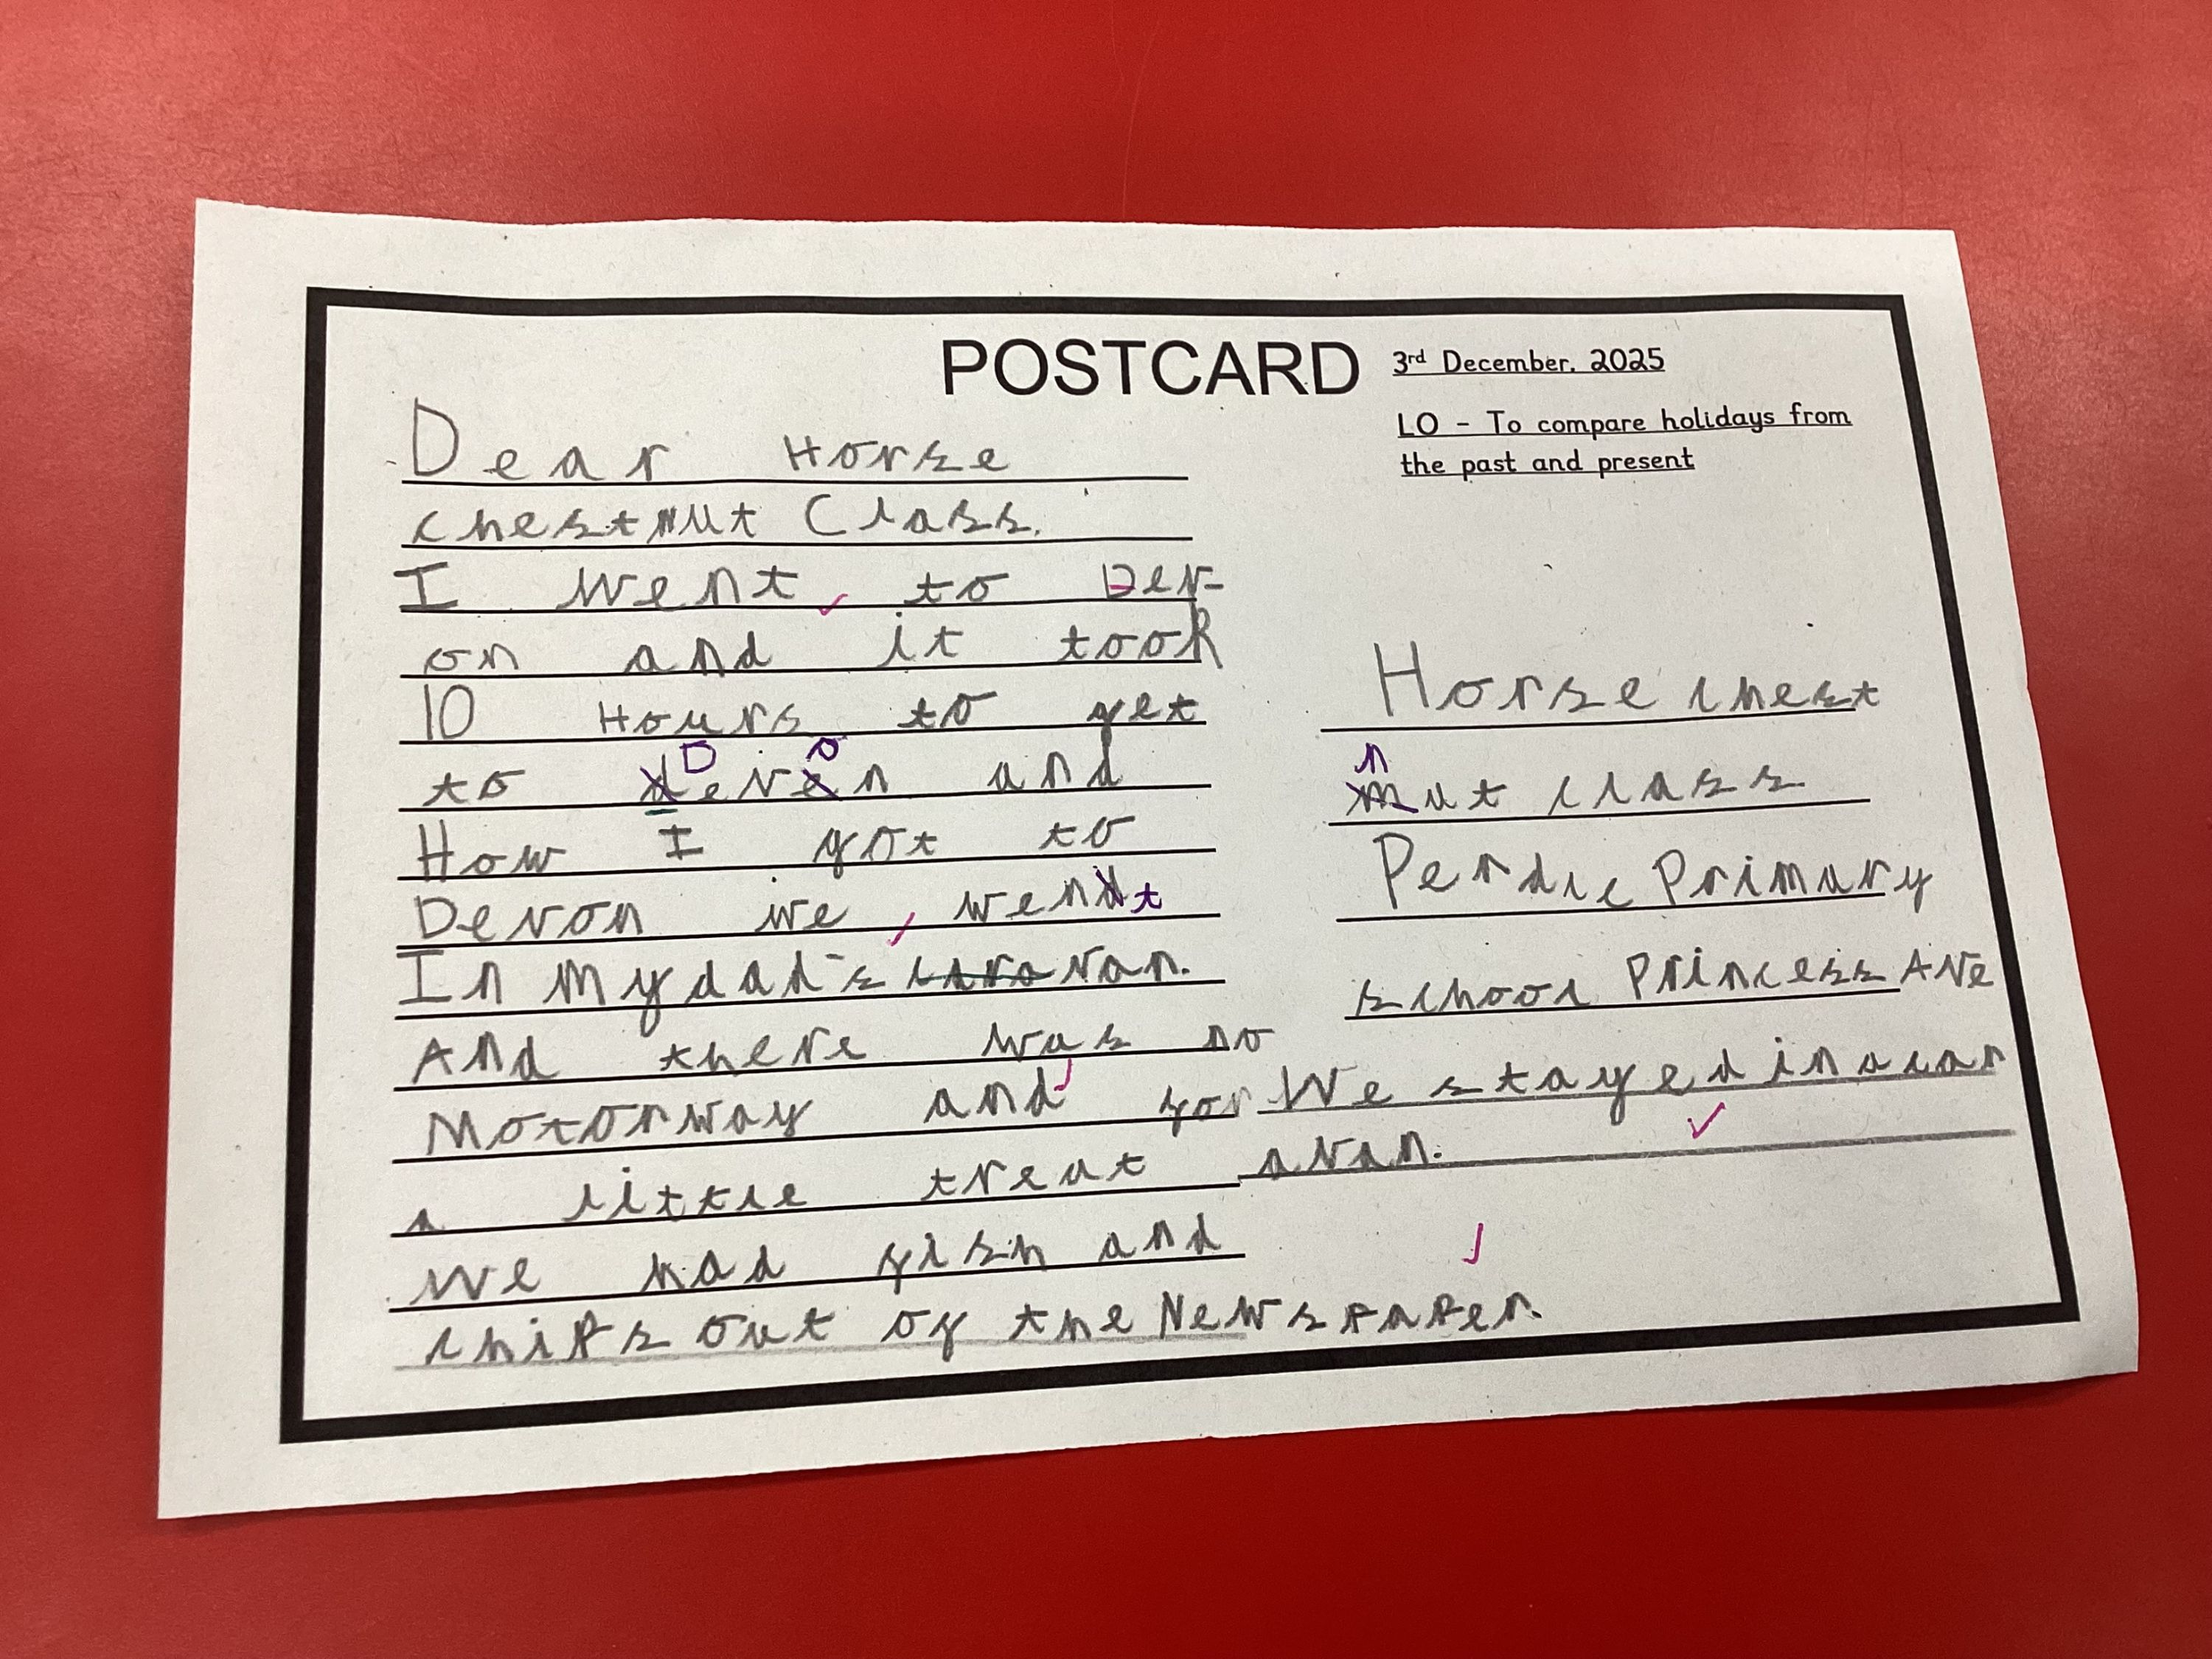 POSTCARD
3rd December, 2025
LO - To compare holidays from
the past and present
Dear Horse
chestnut Class.
I went to Dev-
on and it took
10 Hours to get
to Devon and
How I got to
Devon we went
In my dad's van.
And there was no
Motorway and for
a little treat
we had fish and
chips out of the Newspaper.
Horse chest
nut class
Perdic Primary
school Princess Ave
We stayed in a car
avan.